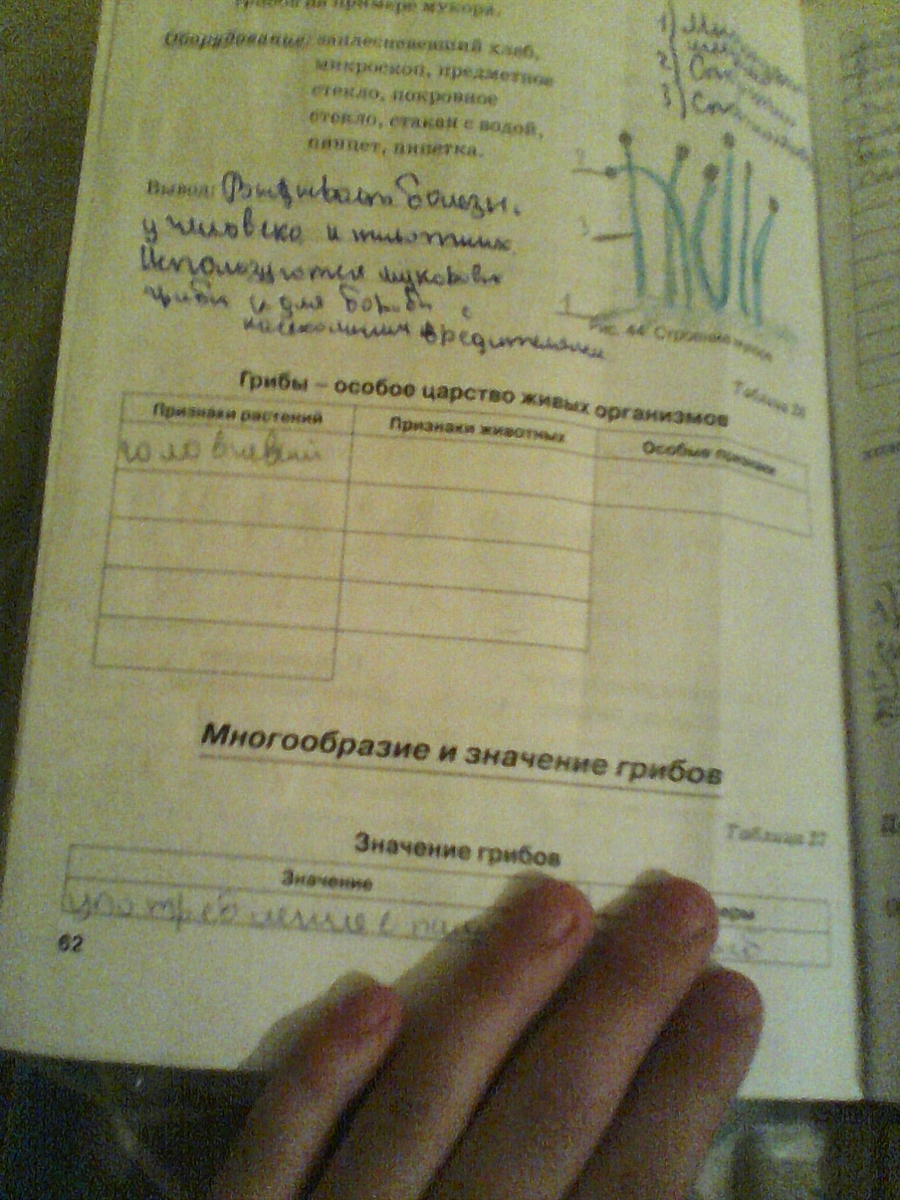 грибов на примере мукора.
Оборудование: заплесневевший хлеб,
микроскоп, предметное
стекло, покровное
стекло, стакан с водой,
пинцет, пипетка.
1)
2)
3)
2
3
1
Вывод: Вызывают болезн.
у человека и животных.
Используются мукоров
грибы и для борьбы с
насекомыми вредителями
Рис. 44. Строение мукора
Таблица 26
Грибы – особое царство живых организмов
Признаки растений Признаки животных Особые признаки
Многообразие и значение грибов
Таблица 27
Значение грибов
Значение
употребление с
62